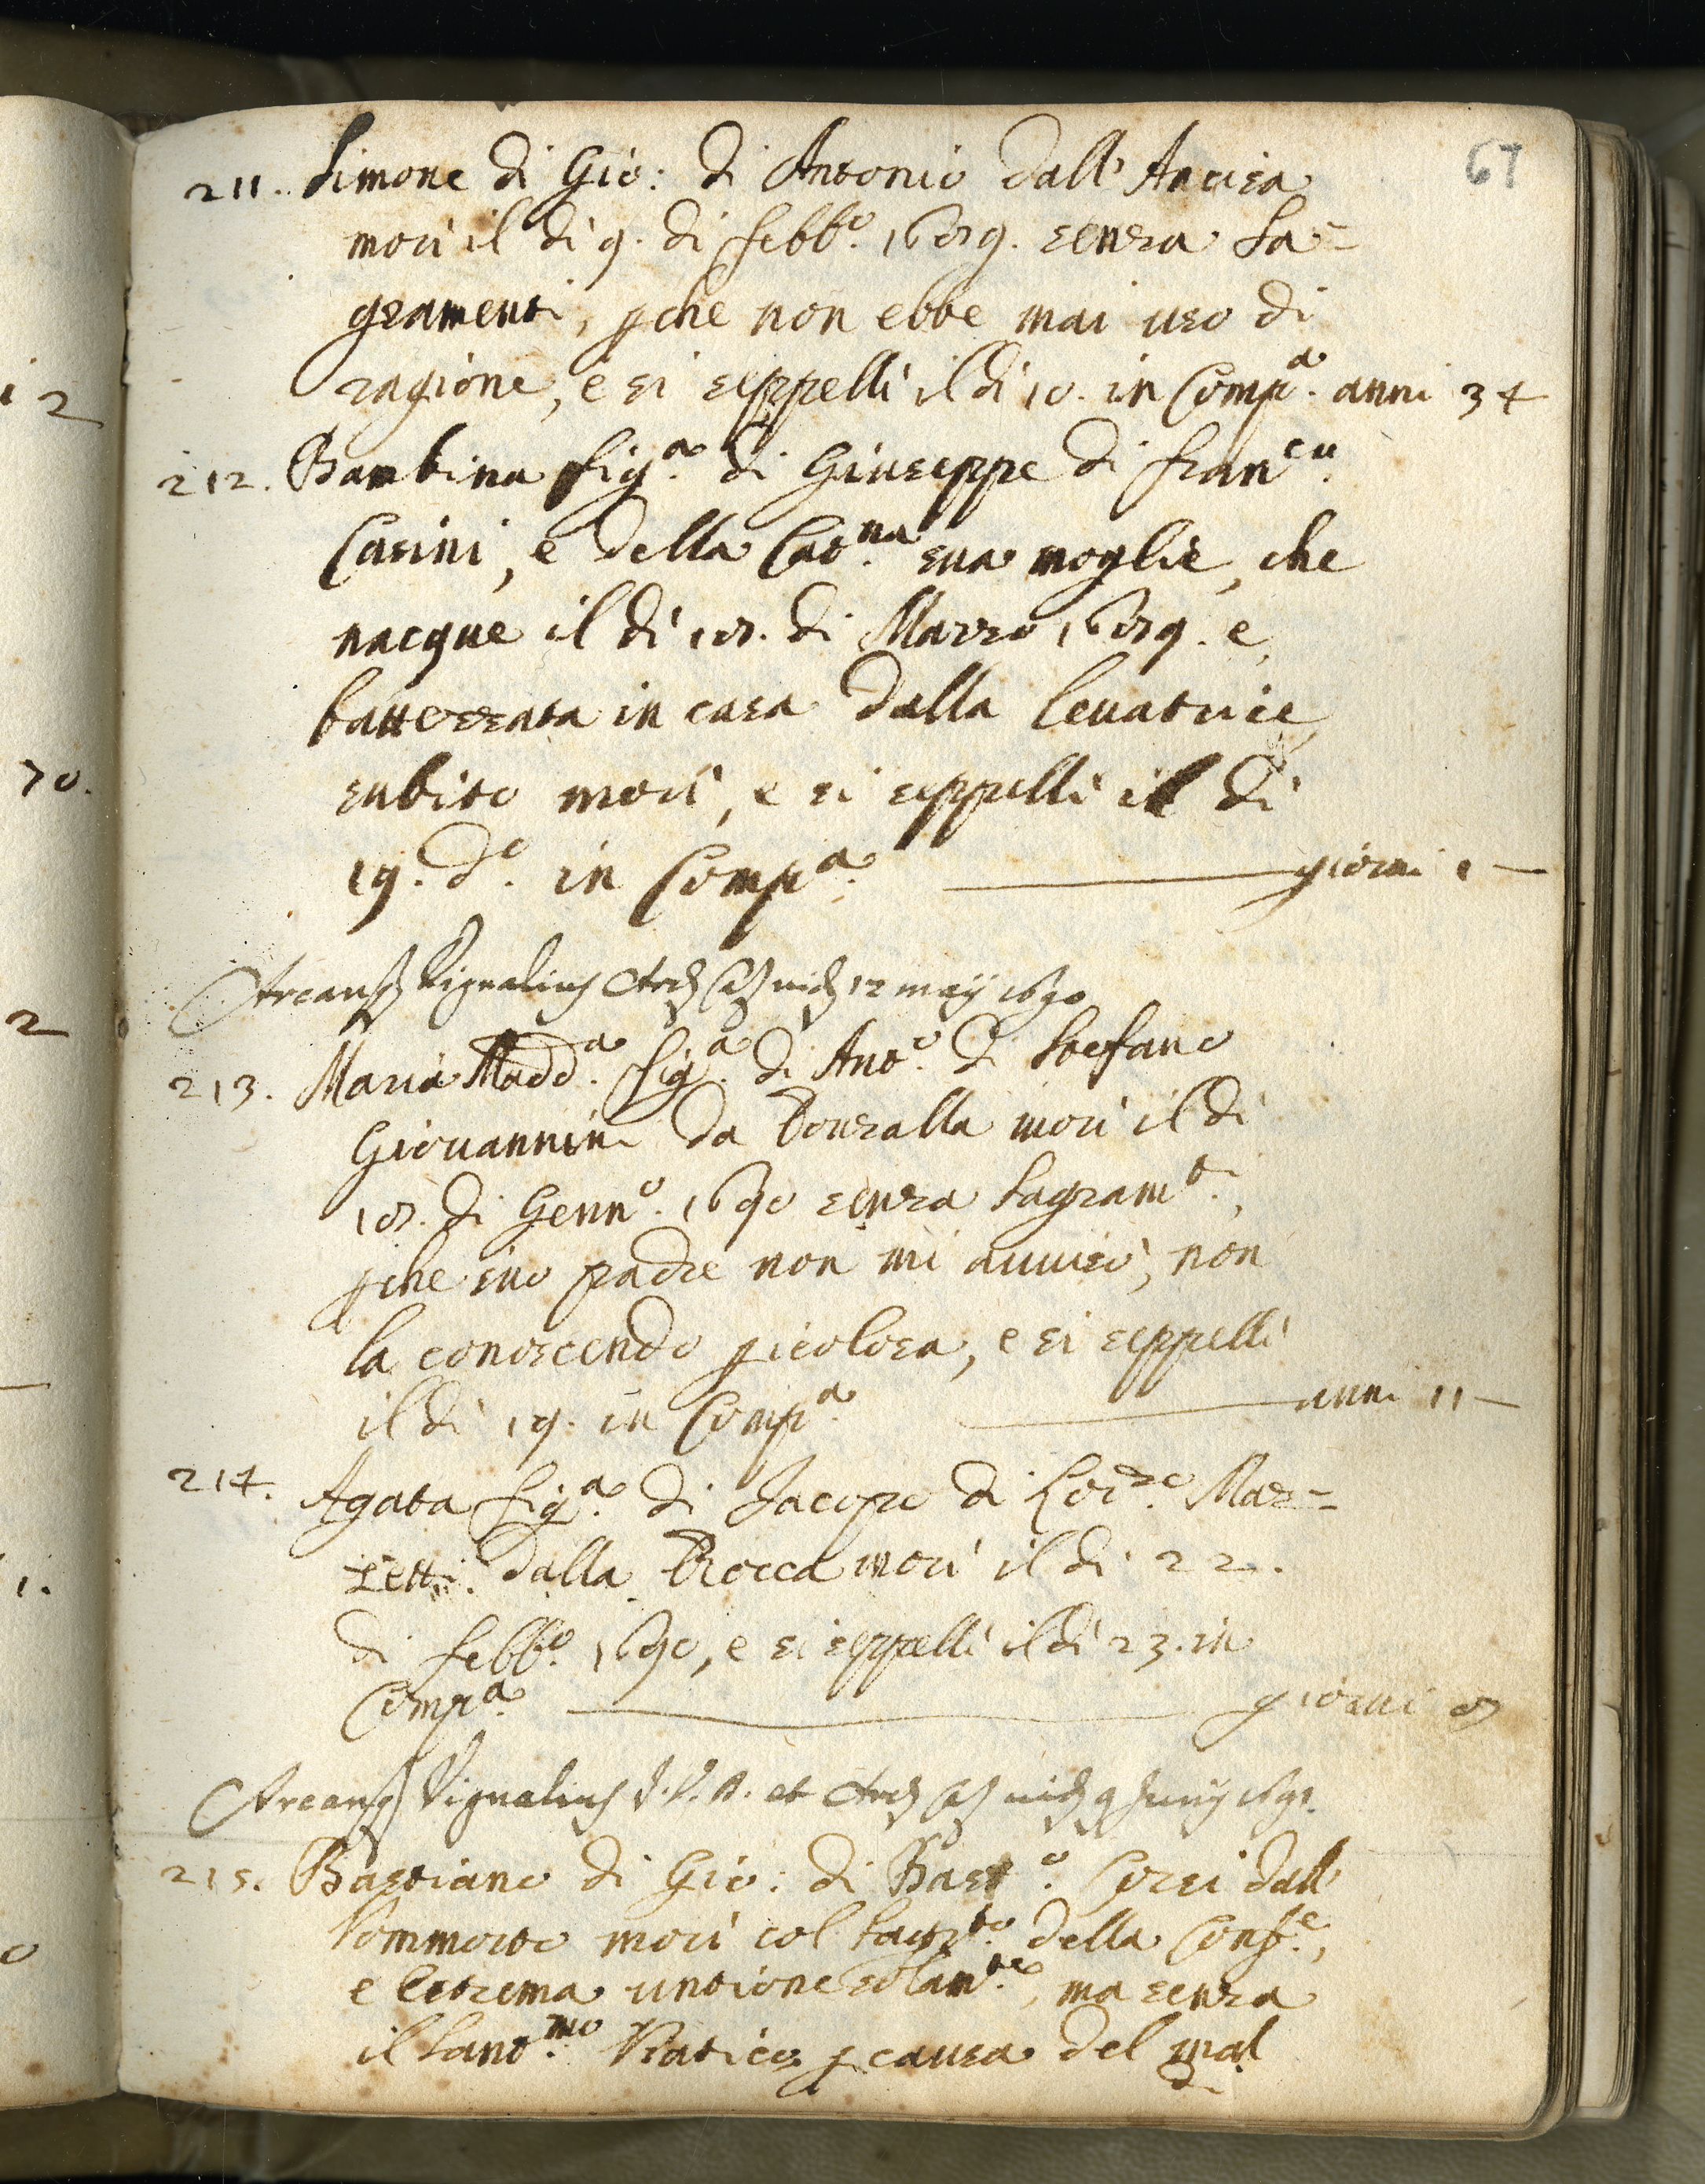 67
211. Simone di Gio: di Antonio dall' Ancisa
morì il dì 9. di Febb.o 1689. senza Sa=
gramenti, pche non ebbe mai uso di
ragione, e si seppellì il dì 10. in Comp.a anni 34
212. Bambina fig.a di Giuseppe di Fran.co
Casini, e della Cat.na sua moglie, che
nacque il dì 18. di Marzo 1689. e
battezzata in casa dalla levatrice
subito morì, e si seppellì il dì
19. d.o in Comp.a giorni 1
Vignalius 12 maij 1690
213. Maria Madd.a fig.a di Ant.o di Stefano
Giovannini da morì il dì
18. di Genn.o 1690 senza Sagram.ti,
pche suo padre non mi avvisò, non
la conoscendo picolosa, e si seppellì
il dì 19. in Comp.a anni 11
214. Agata fig.a di Jacopo di Lor.zo Mar=
tetti dalla Rocca morì il dì 22.
di Febb.o 1690, e si seppellì il dì 23. in
Comp.a giorni 8
Vignalius et 9 Junij 1691.
215. Bastiano di Gio: di Bast.o Corsi dall'
mori col Sagr.to della Conf.e,
e Estrema untione solam.te, ma senza
il Sant.mo Viatico p causa del mal